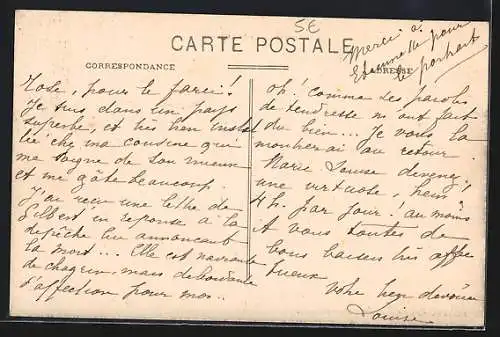 S.E
Merci à
Etiennette pour
le portrait
CARTE POSTALE
CORRESPONDANCE
ADRESSE
Rose, pour le farci!
Je suis dans un pays
superbe, et très bien instal
lée chez ma cousine qui
me soigne de son mieux
et me gâte beaucoup.
J'ai reçu une lettre de
Gilbert en réponse à la
dépêche lui annonçant
la mort... Elle est navrante
de chagrin, mais débordante
d'affection pour moi..
Oh! comme des paroles
de tendresse m'ont fait
du bien... Je vous la
montrerai au retour
Marie Louise devenez!
une virtuose, hein
4h. par jour! au moins
A vous toutes de
bons baisers très affec
tueux
Votre bien dévouée
Louise